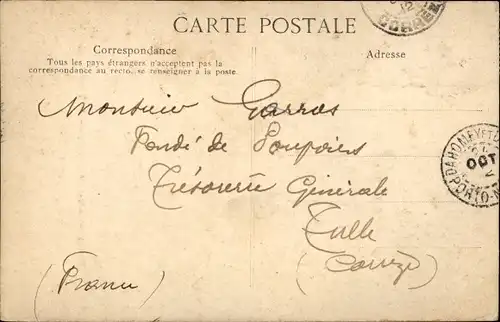 CARTE POSTALE
Correspondance
Adresse
Tous les pays étrangers n'acceptent pas la
correspondance au recto, se renseigner à la poste
Monsieur Garros
Fondé de Pouvoirs
Trésorerie Générale
Tulle
(Corrèze)
(France)
12
CORREZE
DAHOMEY ET
OCT
PORTO-N